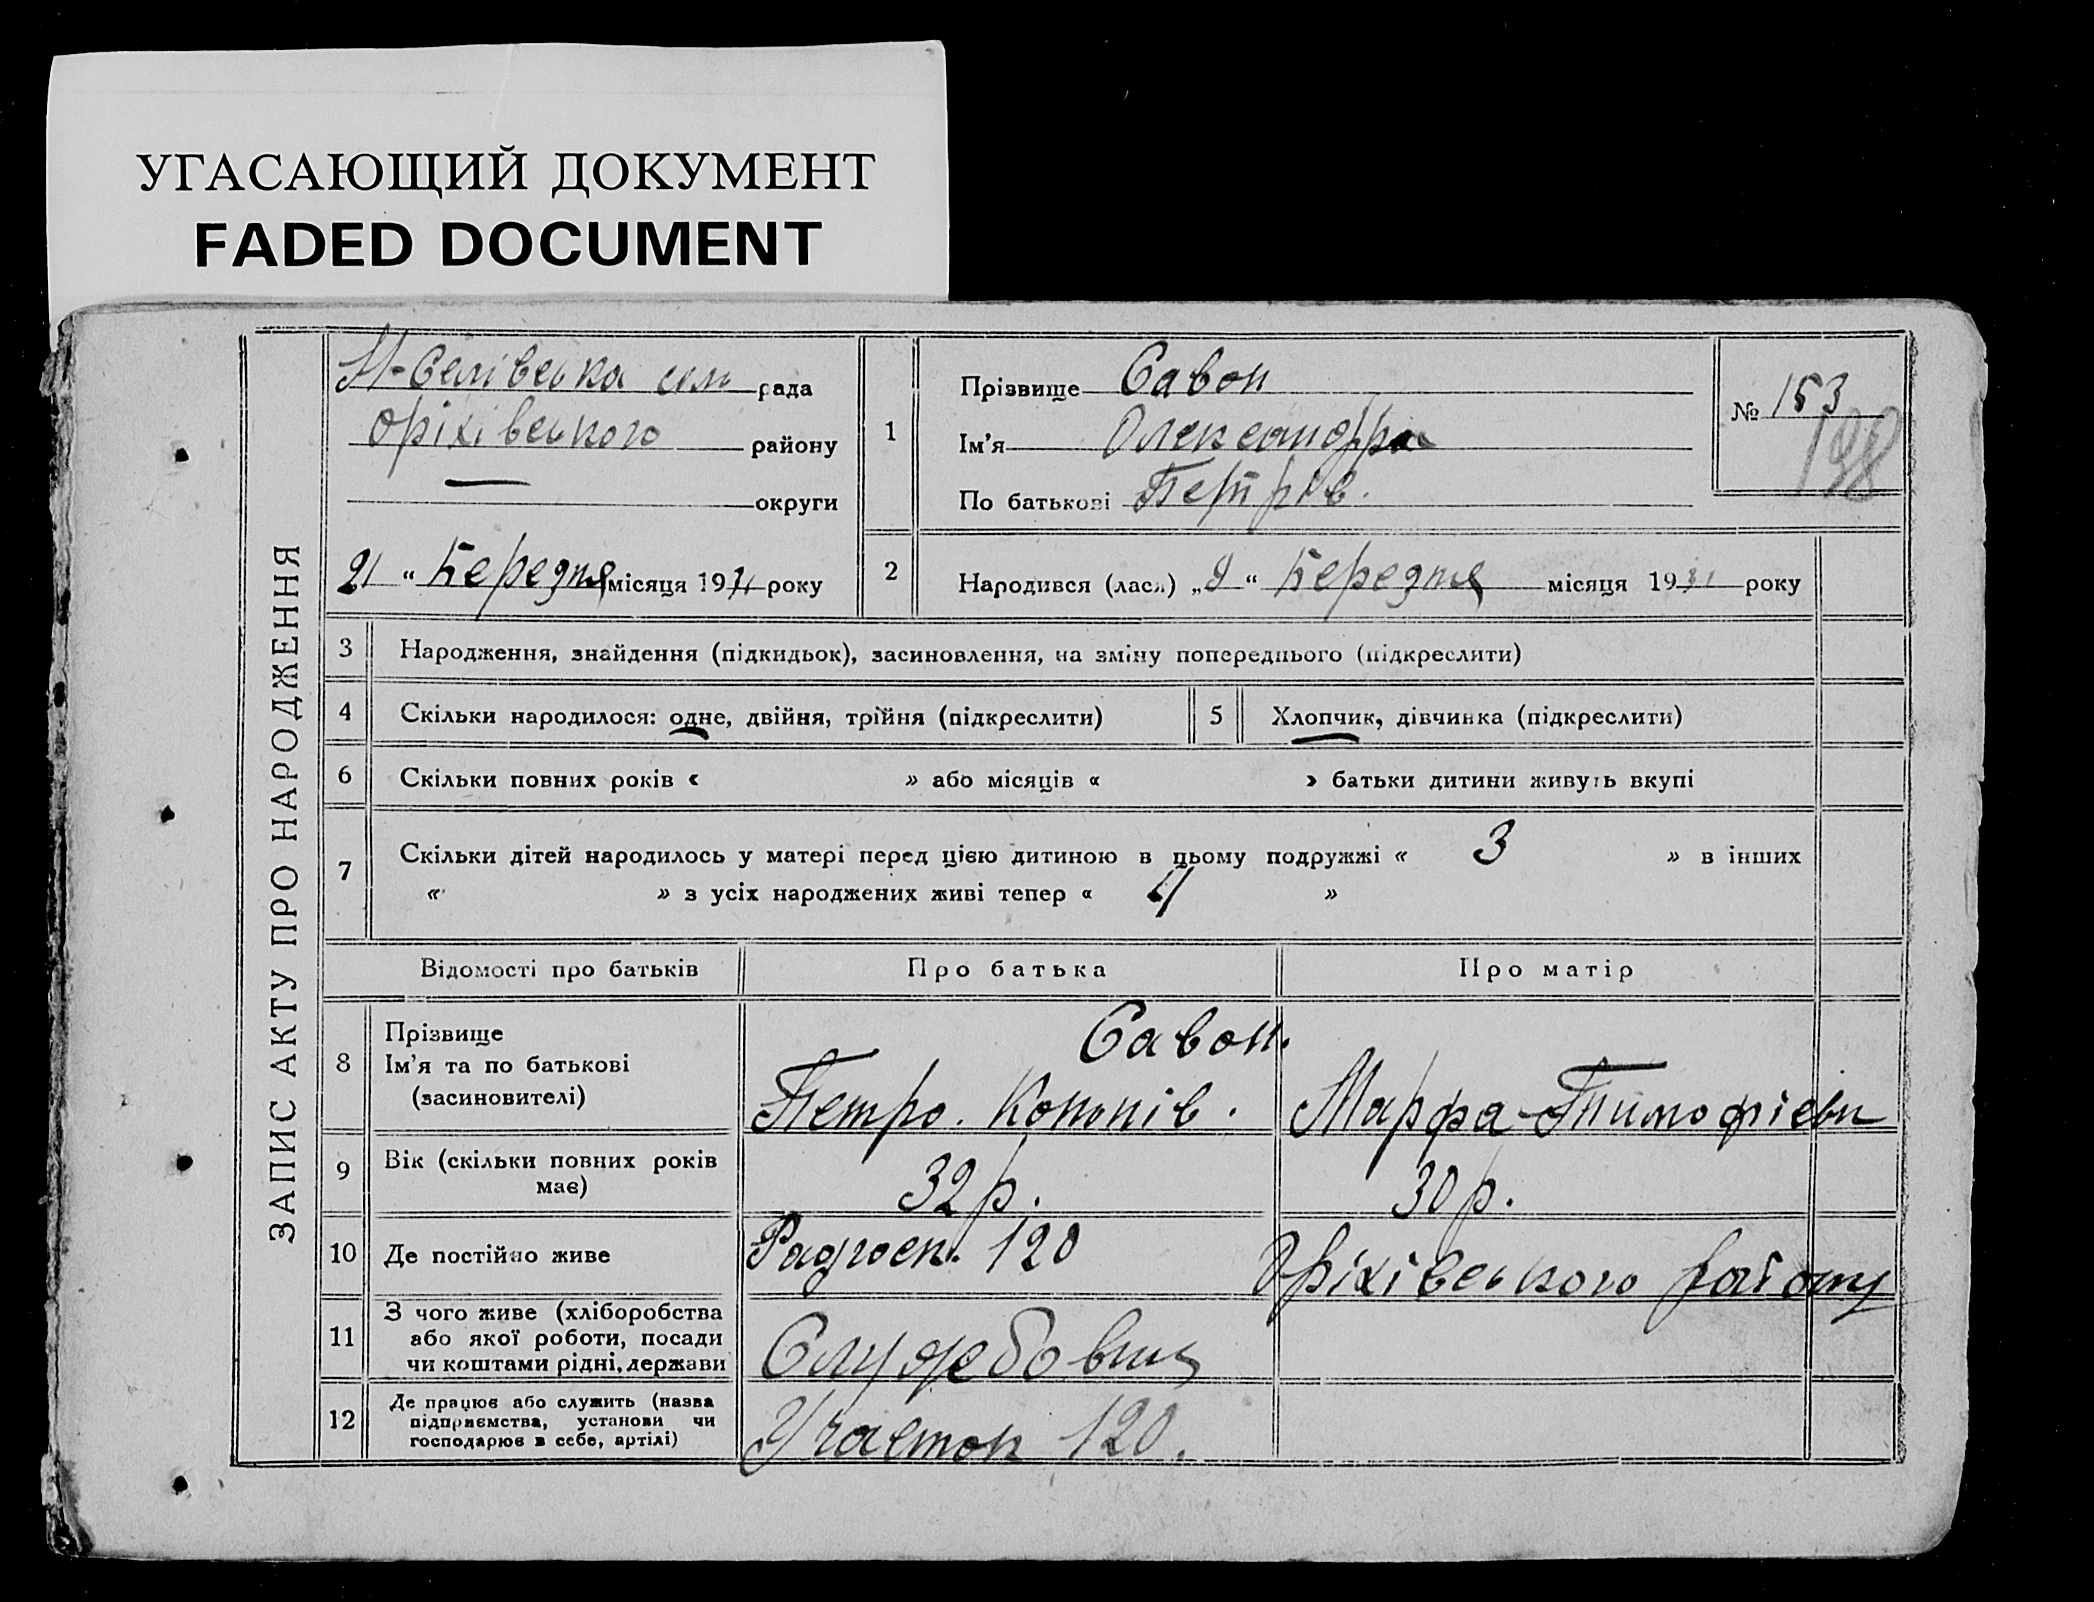 УГАСАЮЩИЙ ДОКУМЕНТ
FADED DOCUMENT
ЗАПИС АКТУ ПРО НАРОДЖЕННЯ
рада
Оріхівського району
округи
21 “ Березня місяця 1931 року
1
Прізвище Савон
Ім’я Олександра
По батькові Петрів.
№ 153
198
2
Народився (лася) „9 “ Березня місяця 1931 року
3 Народження, знайдення (підкидьок), засиновлення, на зміну попереднього (підкреслити)
4 Скільки народилося: одне, двійня, трійня (підкреслити)
5 Хлопчик, дівчинка (підкреслити)
6 Скільки повних років « » або місяців « » батьки дитини живуть вкупі
7 Скільки дітей народилось у матері перед цією дитиною в цьому подружжі « 3 » в інших
« » з усіх народжених живі тепер « 4 »
Відомості про батьків Про батька Про матір
8 Прізвище
Ім’я та по батькові
(засиновителі)
Савон.
Петро. Марфа Тимофієвн
9 Вік (скільки повних років
має)
32 р. 30 р.
10 Де постійно живе
Радгосп. 120 Оріхівського району
11 З чого живе (хліборобства
або якої роботи, посади
чи коштами рідні, держави
Службовиц
12 Де працює або служить (назва
підприємства, установи чи
господарює в себе, артілі)
Участок 120.